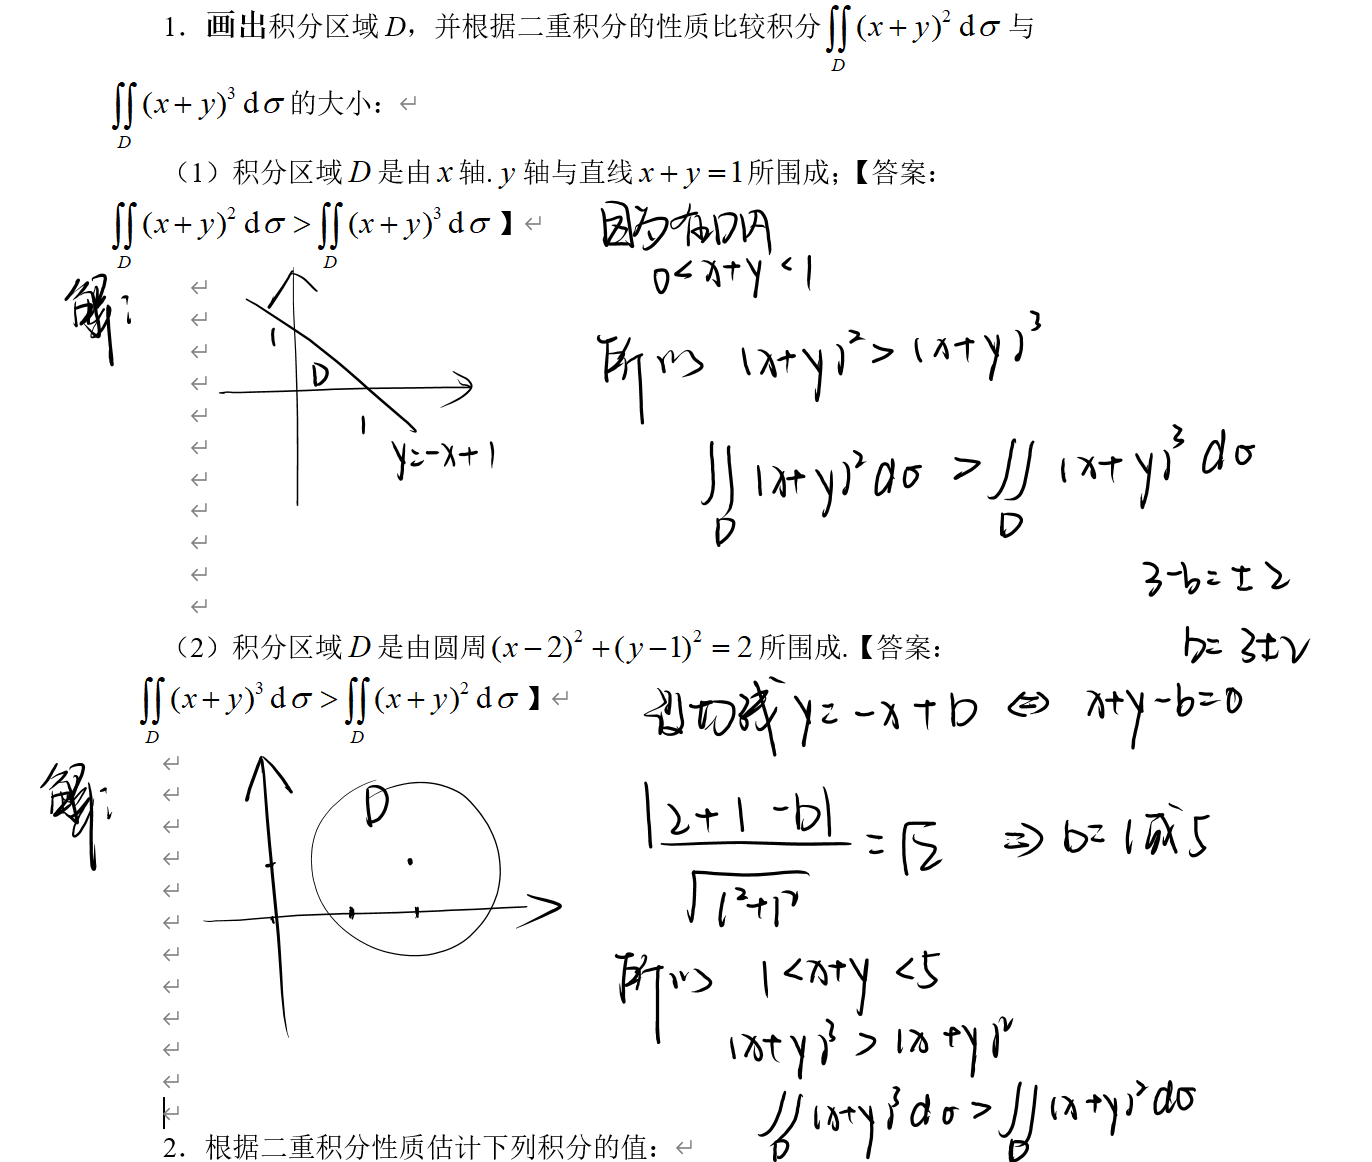 1．画出积分区域 D，并根据二重积分的性质比较积分∬_D (x+y)² dσ 与
∬_D (x+y)³ dσ 的大小：
（1）积分区域 D 是由 x 轴. y 轴与直线 x+y=1所围成；【答案：
∬_D (x+y)² dσ > ∬_D (x+y)³ dσ 】
解：
1
D
1
y=-x+1
因为在D内
0<x+y<1
所以 (x+y)²>(x+y)³
∬_D (x+y)² dσ > ∬_D (x+y)³ dσ
3-b=±2
b=3±2
（2）积分区域 D 是由圆周 (x−2)²+(y−1)²=2 所围成.【答案：
∬_D (x+y)³ dσ > ∬_D (x+y)² dσ 】
解：
D
设切线 y=-x+b ⇔ x+y-b=0
|2+1-b|/√(1²+1²) = √2 ⇒ b=1或5
所以 1<x+y<5
(x+y)³>(x+y)²
∬_D (x+y)³ dσ > ∬_D (x+y)² dσ
2．根据二重积分性质估计下列积分的值：